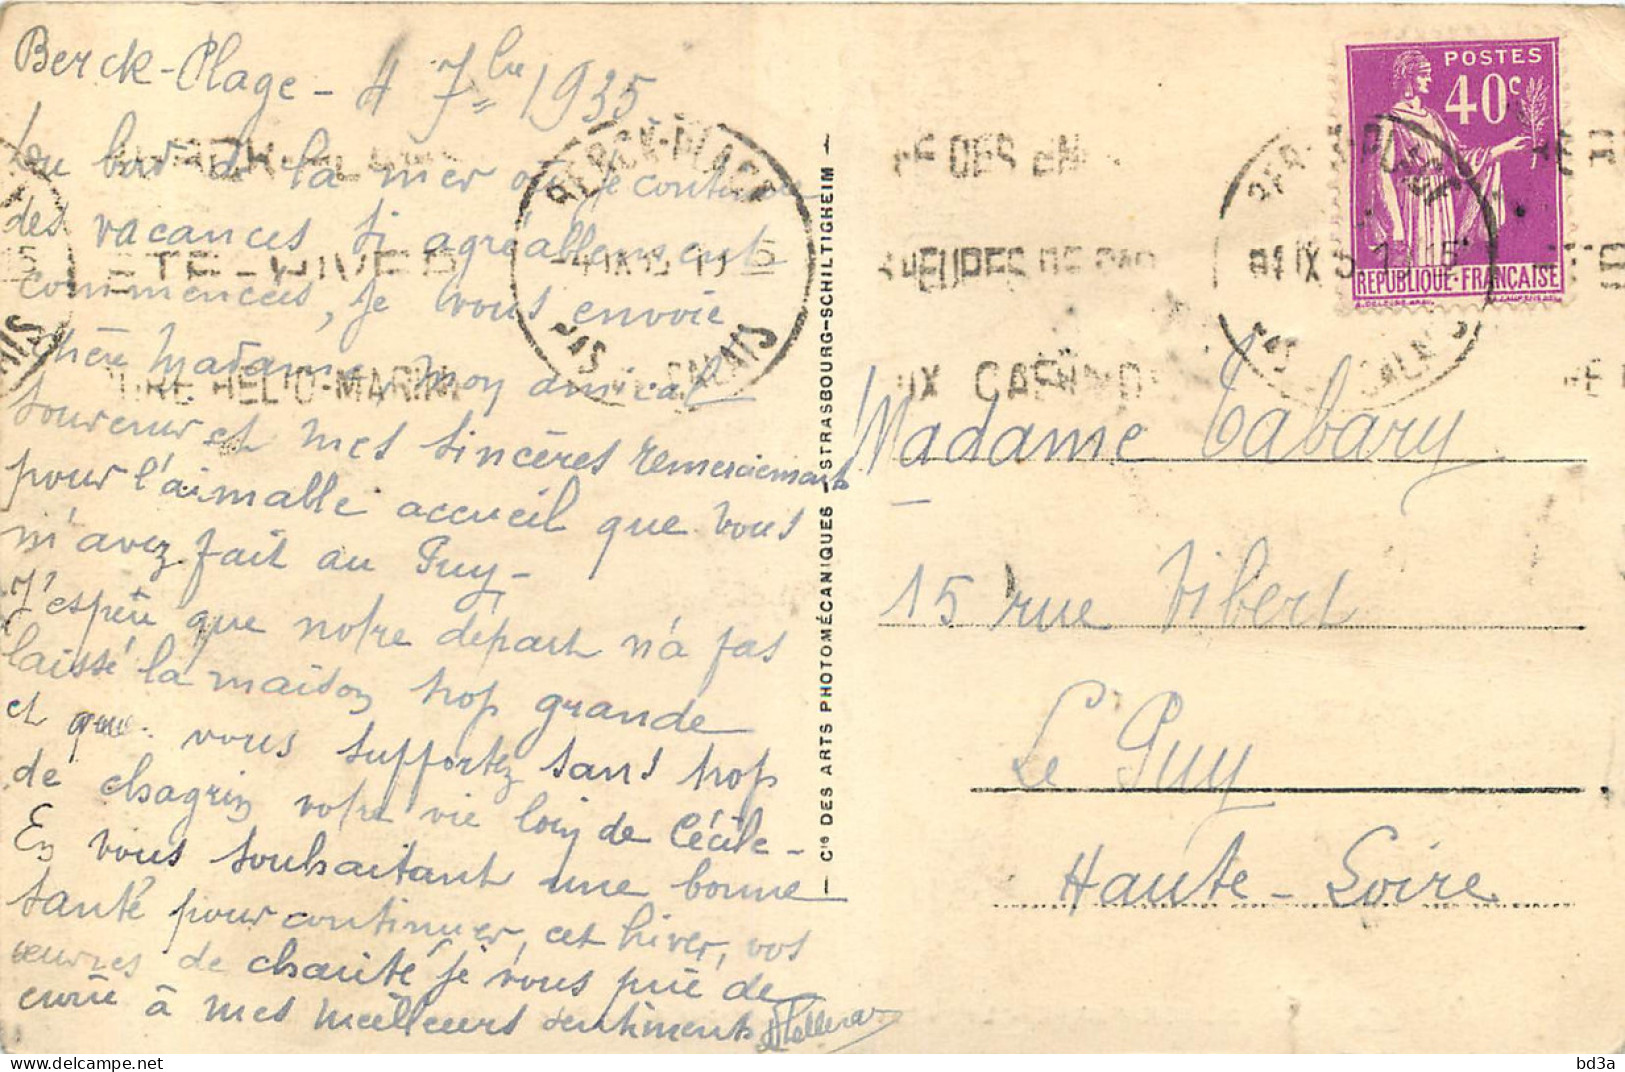 Berck-Plage - 4 7bre 1935
Au bord de la mer où je continue
des vacances si agréablement
commencées, je vous envoie
chère Madame, mon amical
souvenir et mes sincères remerciements
pour l'aimable accueil que vous
m'avez fait au Puy -
J'espère que notre départ n'a pas
laissé la maison trop grande
et que vous supportez sans trop
de chagrin votre vie loin de Cécile -
En vous souhaitant une bonne
santé pour continuer, cet hiver, vos
œuvres de charité je vous prie de
croire à mes meilleurs sentiments
BERCK-PLAGE
PAS DE CALAIS
ETE-HIVER
CURE HELIO-MARINE
Cie DES ARTS PHOTOMÉCANIQUES - STRASBOURG-SCHILTIGHEIM
POSTES
40c
REPUBLIQUE-FRANÇAISE
BERCK-PLAGE
PAS DE CALAIS
Madame Tabary
15 rue Vibert
Le Puy
Haute-Loire
bd3a